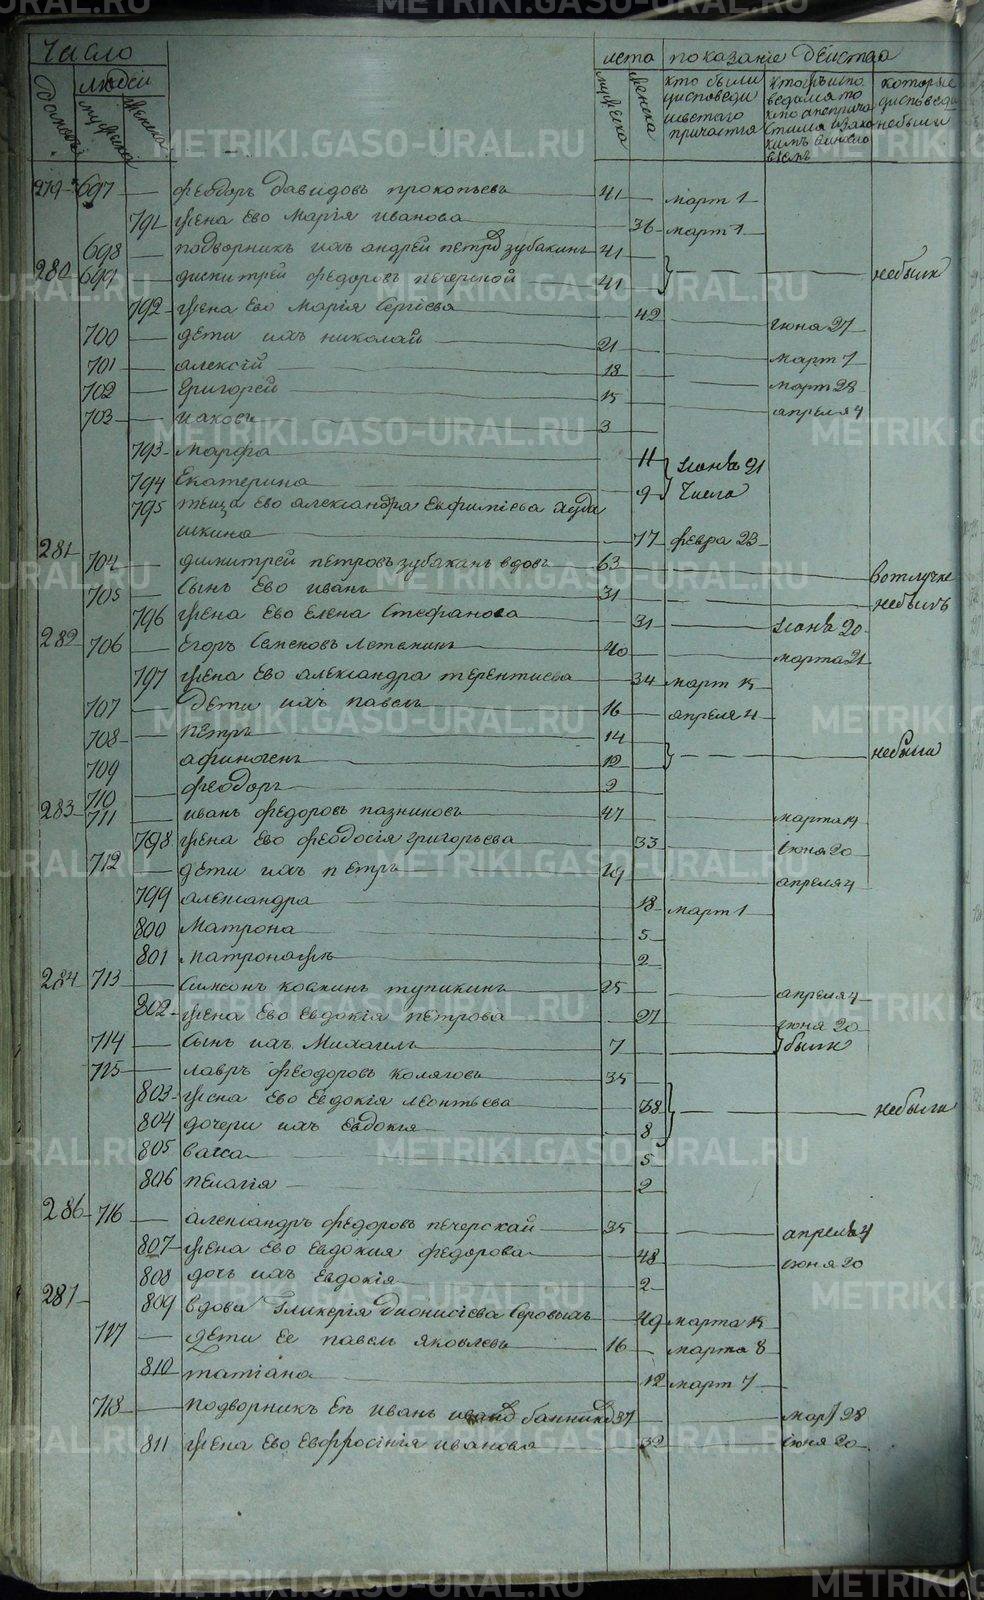 Число
лета показаніе действа
домовъ людей
мужеска женска
мужеска женска
кто были у исповеди и святаго причастия
которые исповеди небыли
279 697 Феодоръ Давидовъ Прокопьевъ 41 март 1
791 жена ево Марія Иванова 36 март 1
698 подворникъ ихъ Андрей Петров Зубакинъ 41
280 699 Димитрей Федоровъ Печерской 41 небыли
792 жена ево Марія Сергіева 42 июня 27
700 дети ихъ Николай 21 март 7
701 Алексій 18 март 28
702 Григорей 15 апреля 4
703 Иаковъ 3
793 Марфа 11 июня 21
794 Екатерина 9 числа
795 теща ево Александра Евфиміева
шкина 77 февра 23
281 704 Димитрей Петровъ Зубакинъ вдовъ 63 в отлучке
705 сынъ ево Иванъ 31 небылъ
796 жена ево Елена Стефанова 31 июня 20
282 706 Егоръ Семеновъ Летенинъ 40 марта 21
797 жена ево Александра Терентиева 34 март 15
707 дети ихъ Павелъ 16 апреля 4
708 Петръ 14
709 Афиногенъ 12 небыли
710 Феодоръ 9
283 711 Иванъ Федоровъ Пазниковъ 47 марта 14
798 жена ево Феодосія Григорьева 33 июня 20
712 дети ихъ Петръ 19 апреля 4
799 Александра 18 март 1
800 Матрона 5
801 Матрона жъ 2
284 713 Симеонъ Козминъ Тупикинъ 25 апреля 4
802 жена ево Евдокія Петрова 27 июня 20
714 сынъ ихъ Михаилъ 7 были
715 Лавръ Феодоровъ Коляговъ 35
803 жена ево Евдокія Леонтьева 38 небыли
804 дочери ихъ Евдокія 8
805 Васса 5
806 Пелагія 2
286 716 Александръ Федоровъ Печерскай 35 апреля 4
807 жена ево Евдокия Федорова 48 июня 20
808 дочь ихъ Евдокія 2
287 809 вдова Гликерія Дионисіева Серовыхъ 49 марта 15
717 дети ее Павелъ Яковлевъ 16 марта 8
810 Татіана 12 март 7
718 подворникъ ее Иванъ Иванов Банников 37 мар 28
811 жена ево Евфросінія Иванова 32 июня 20
METRIKI.GASO-URAL.RU